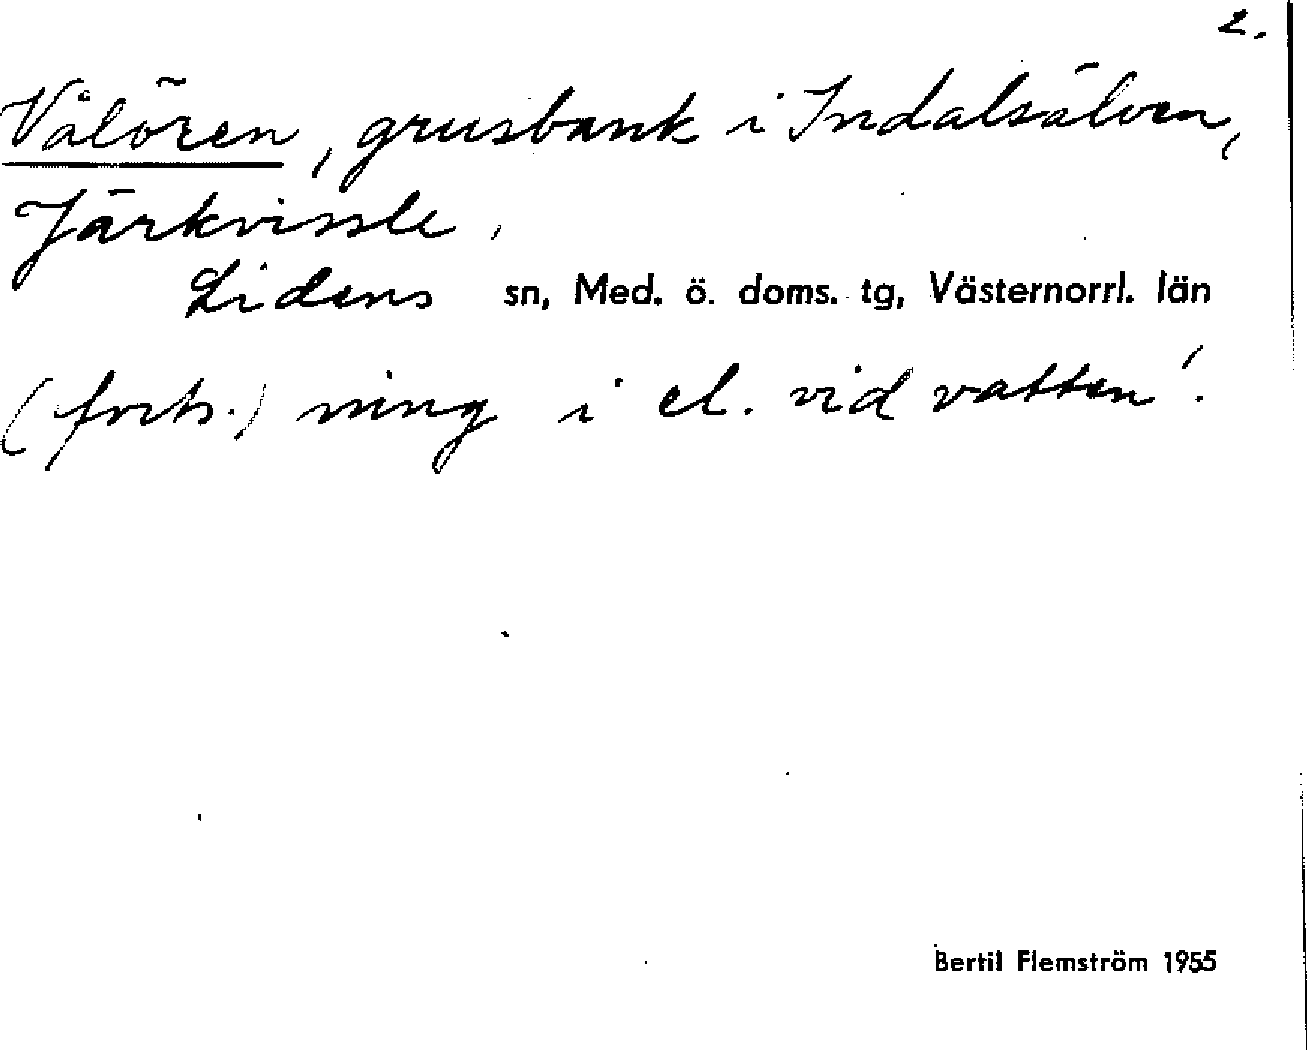 2.
Vålören, grusbank i Indalsälven,
Järkvissle,
Lidens sn, Med. ö. doms. tg, Västernorrl. län
(forts.) ning i el. vid vatten'.
Bertil Flemström 1955